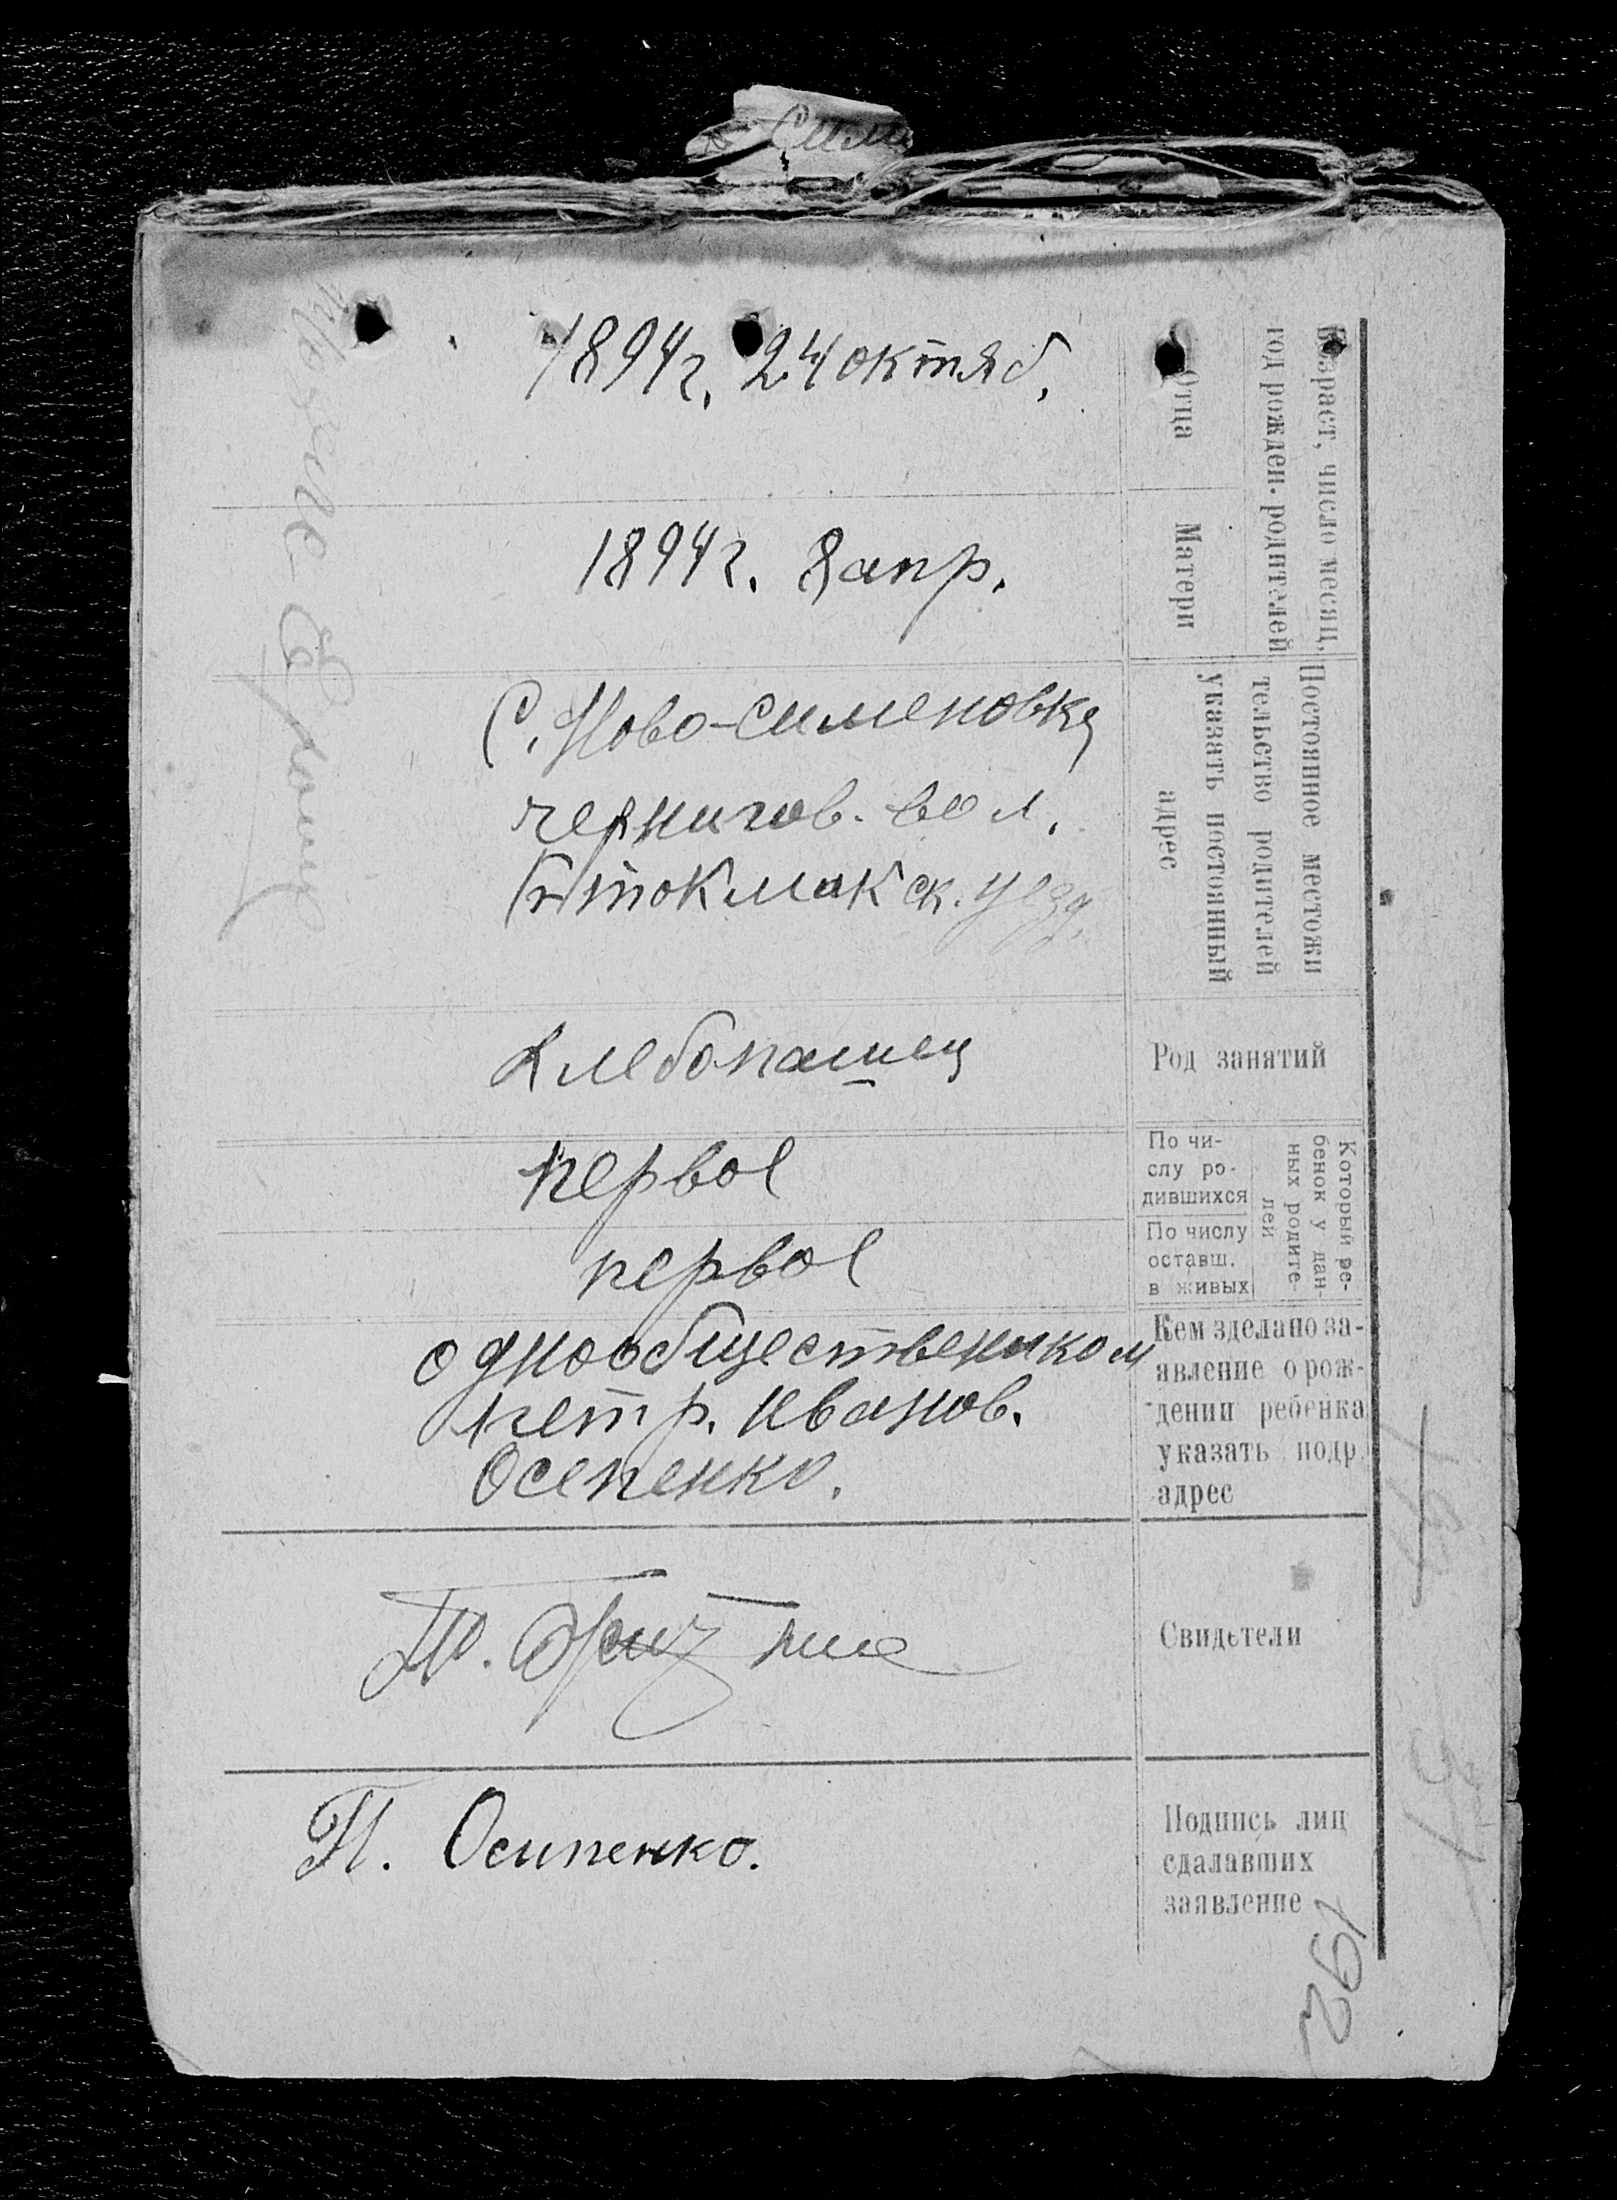 Возраст, число месяц,
год рожден. родителей
Отца
1894г. 24 октяб.
Матери
1894г. 8 апр.
Постоянное местожи
тельство родителей
указать постоянный
адрес
С. Ново-Сименовка
Чернигов. вол.
Б Токмакск. уезд.
Род занятий
Хлебопашец
Который ре-
бенок у дан-
ных родите-
лей
По чи-
слу ро-
дившихся
первое
По числу
оставш.
в живых
первое
Кем зделано за-
явление о рож-
дении ребенка
указать подр.
адрес
однообществеником
Петр. Иванов.
Осепенко.
Свидетели
Подпись лиц
сдалавших
заявление
П. Осипенко.
192